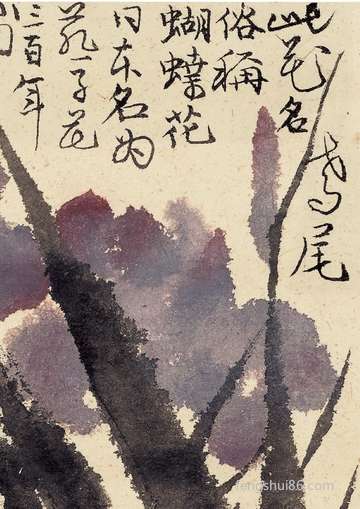 此花名
鸢尾
俗稱
蝴蝶花
日本名为
三百年
fengshui86.com